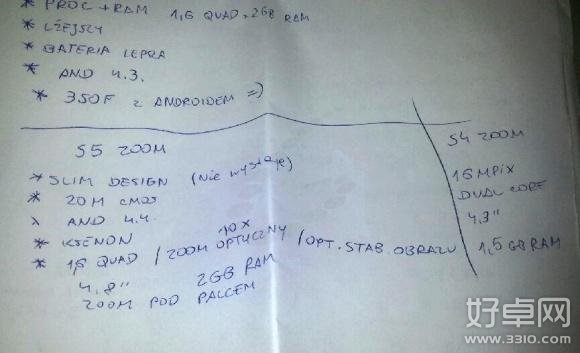 * PROC + RAM 1,6 QUAD, 2GB RAM
* LŻEJSZY
* BATERIA LEPSZA
* AND 4.3.
* 350F z ANDROIDEM =)
S5 ZOOM
* SLIM DESIGN (Nie wystaje)
* 20M CMOS
AND 4.4.
* KSENON
* 1,6 QUAD / 10x ZOOM OPTYCZNY / OPT. STAB. OBRAZU
4,8" 2GB RAM
ZOOM POD PALCEM
S4 ZOOM
16 MPIX
DUAL CORE
4,3"
1,5 GB RAM
好卓网
www.3310.com